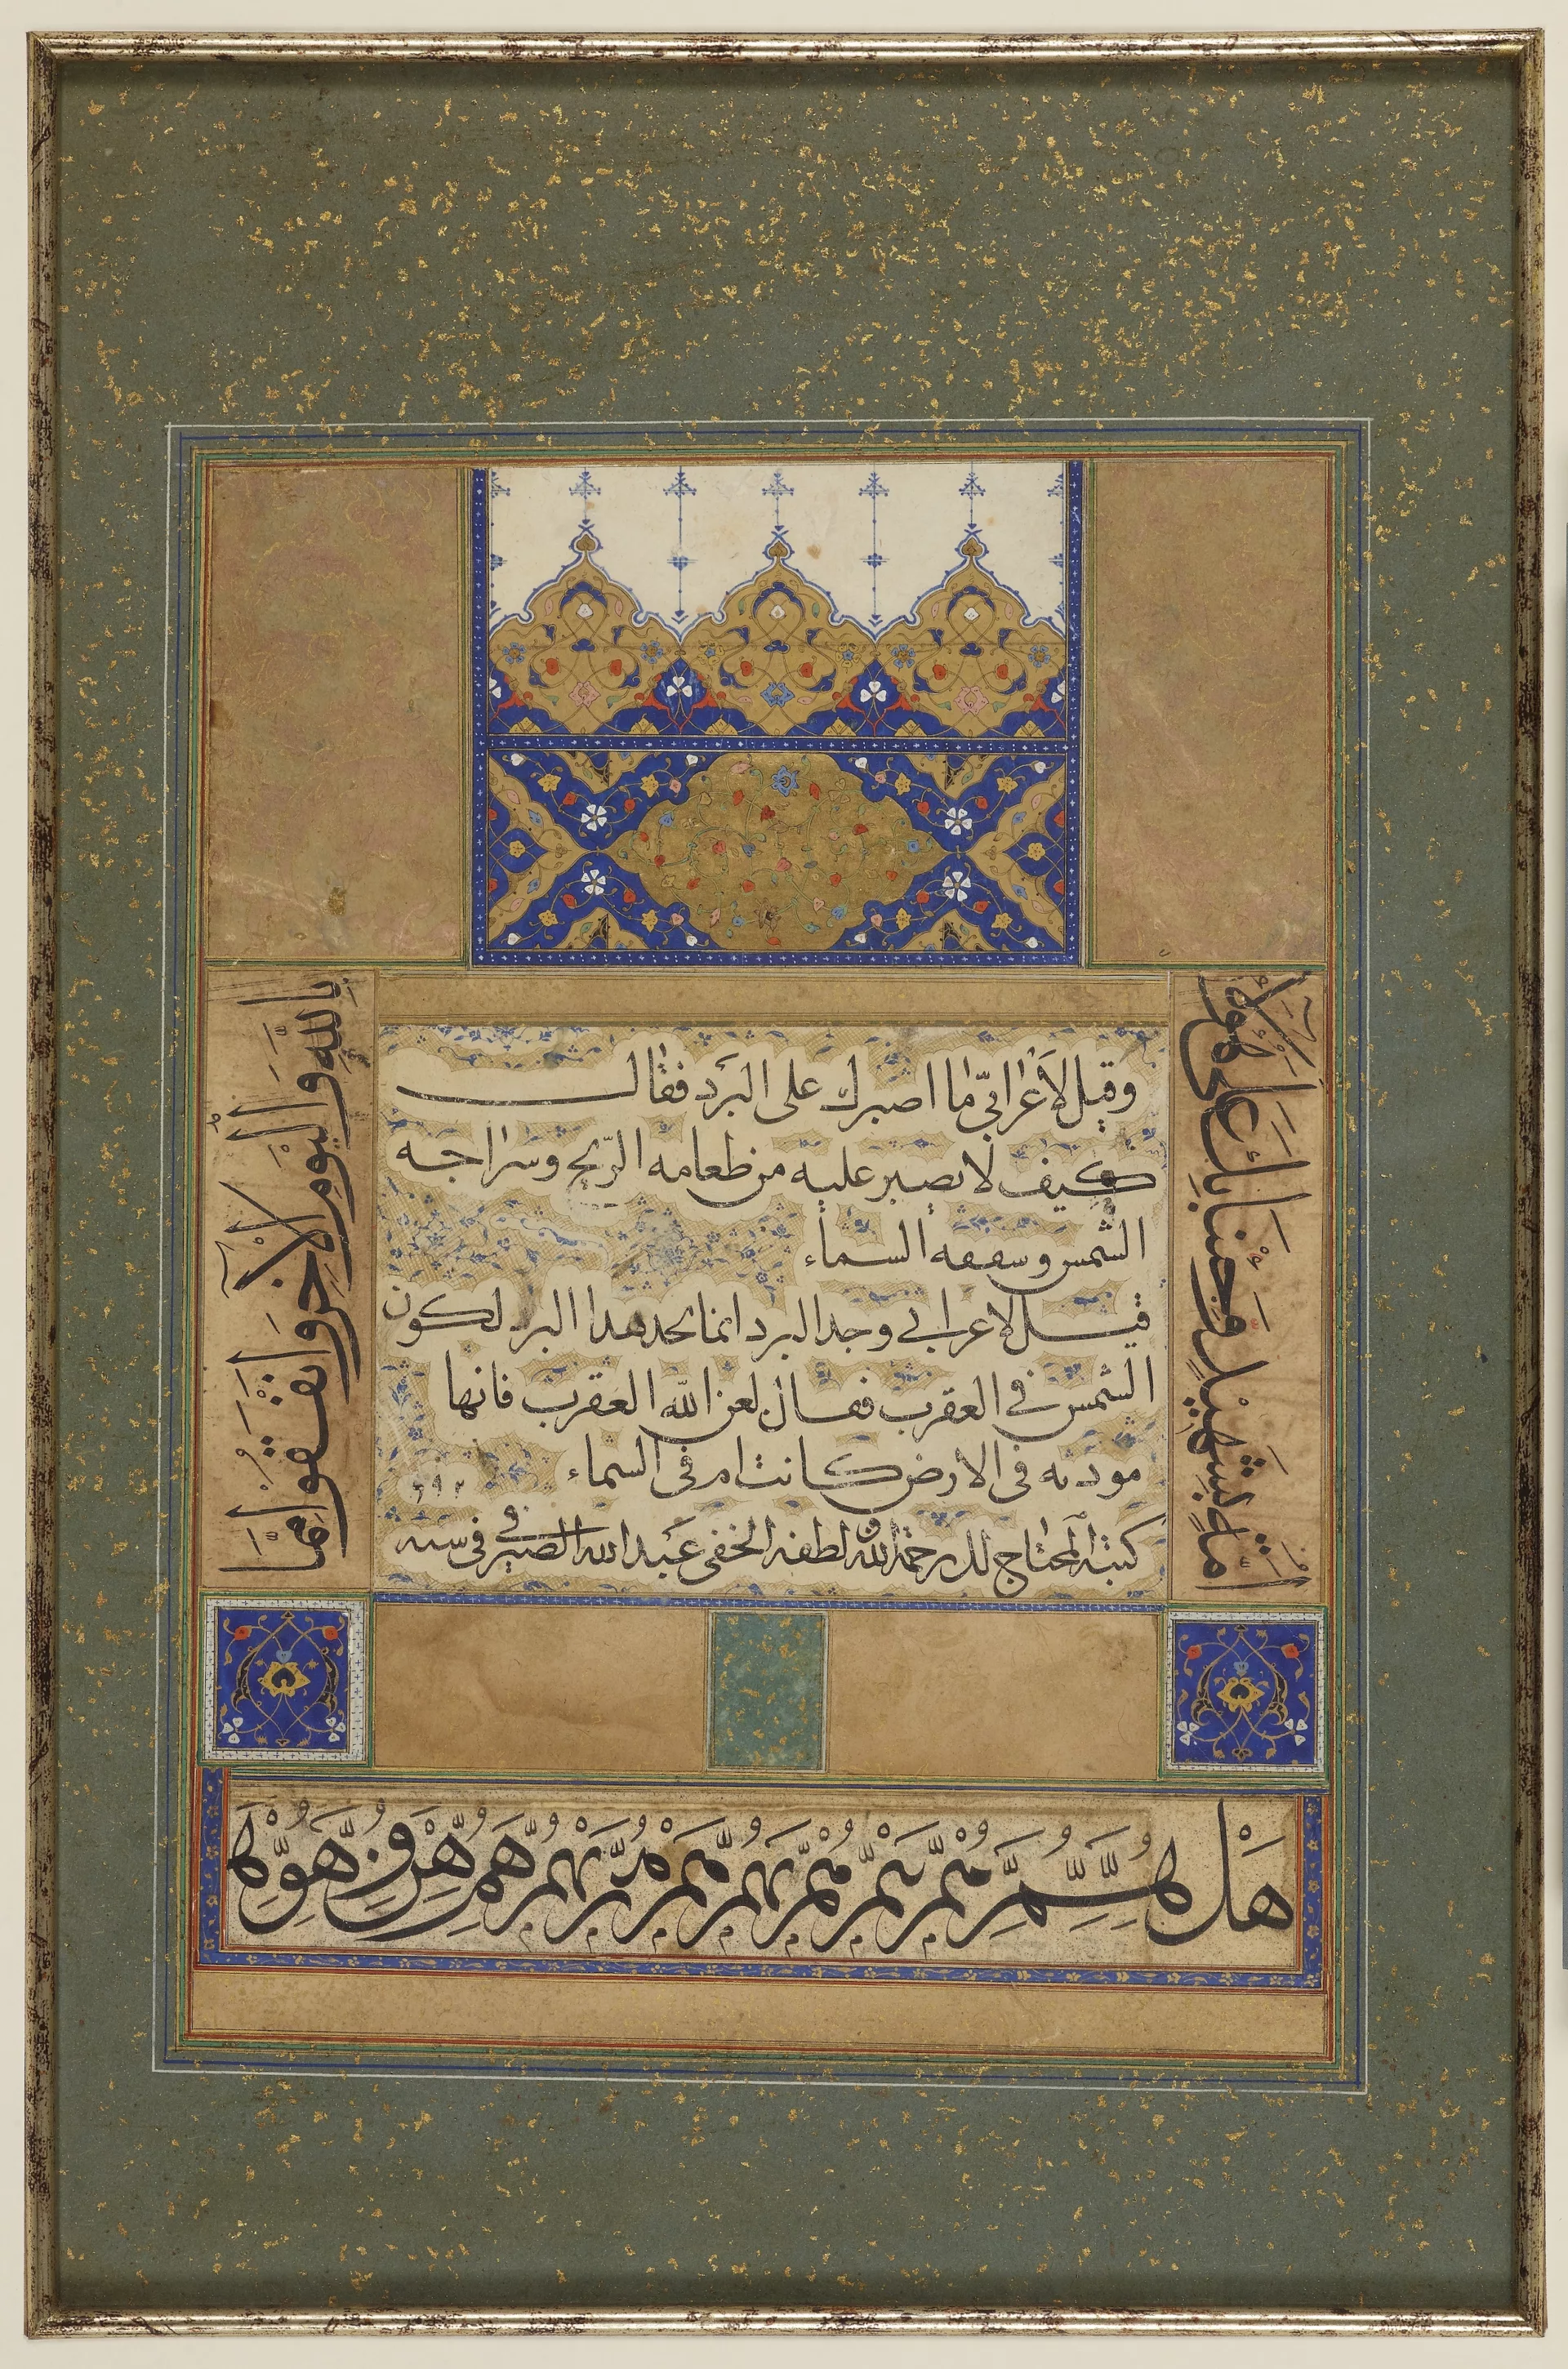 وقيل لأعرابي ما اصبرك على البرد فقال
كيف لا يصبر عليه من طعامه الريح وسراجه
الشمس وسقفه السماء
قيل لاعرابي وجد البرد انما تجد هذا البرد لكون
الشمس في العقرب فقال لعن الله العقرب فانها
موذية في الارض كانت ام في السماء
كتبه المحتاج الى رحمة الله ولطفه الخفي عبد الله الصيرفي في سنه
أمة بشهيد وجئنا بك على هؤلاء
بالله واليوم الآخر وانفقوا مما